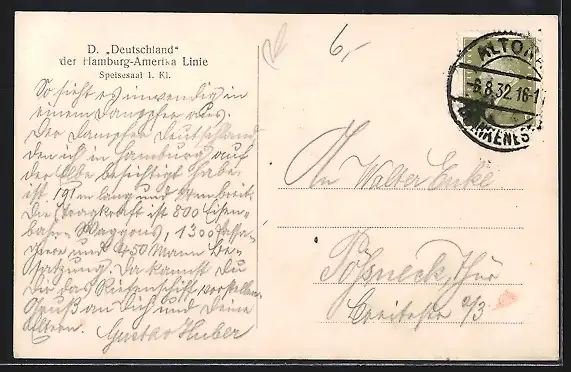 D. „Deutschland“
der Hamburg-Amerika Linie
Speisesaal I. Kl.
6,-
ALTONA
-6.8.32.16-1
BLANKENESE
So sieht es inwendig in
einem Dampfer aus.
Der Dampfer Deutschland
den ich in Hamburg auf
der Elbe besichtigt habe
ist 191 m lang und breit.
Die Tragkraft ist 800 Eisen-
bahn Waggons, 1300 Passa-
giere und 450 Mann Be-
satzung. Da kannst Du
Dir das Riesenschiff vorstellen.
Gruß an Dich und Deine
Eltern. Gustav Huber
An Walter Enke
Pößneck, Thür
Breitestr 2/3